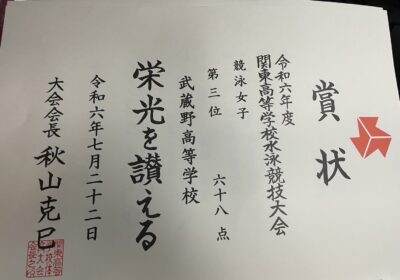 賞状
令和六年度
関東高等学校水泳競技大会
競泳女子
第三位 六十八点
武蔵野高等学校
栄光を讃える
令和六年七月二十二日
大会会長 秋山克巳